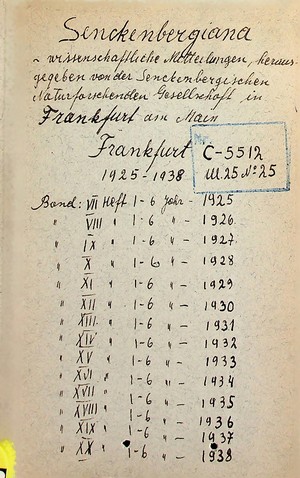 Senckenbergiana
~ wissenschaftliche Mitteilungen, heraus-
gegeben von der Senckenbergischen
Naturforschenden Gesellschaft in
Frankfurt am Main
Frankfurt
1925-1938
Nr.
C-5512
Ш.25 № 25
Band: VII Heft 1-6 Jahr - 1925
" VIII " 1-6 " - 1926
" IX " 1-6 " - 1927
" X " 1-6 " - 1928
" XI " 1-6 " - 1929
" XII " 1-6 " - 1930
" XIII " 1-6 " - 1931
" XIV " 1-6 " - 1932
" XV " 1-6 " - 1933
" XVI " 1-6 " - 1934
" XVII " 1-6 " - 1935
" XVIII " 1-6 " - 1936
" XIX " 1-6 " - 1937
" XX " 1-6 " - 1938